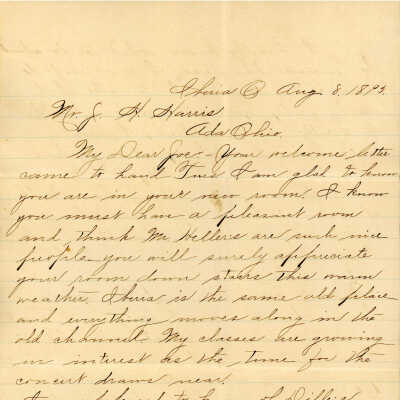 Iberia O Aug. 8, 1892.
Mr. J. H. Harris
Ada Ohio.
My Dear Joe:- Your welcome letter
came to hand Tues. I am glad to know
you are in your new room. I know
you must have a pleasant room
and think Mr. Hellers are such nice
people you will surely appreciate
your room down stairs this warm
weather. Iberia is the same old place
and everything moves along in the
old channel. My classes are growing
in interest as the time for the
concert draws near.
of